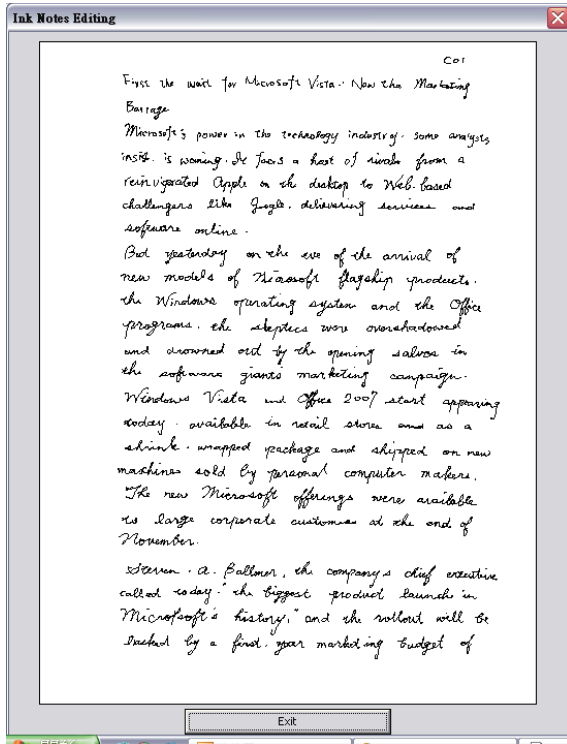 Ink Notes Editing
C01
First the wait for Microsoft Vista. Now the Marketing
Barrage
Microsoft's power in the technology industry. some analysts
insist. is waning. It faces a host of rivals from a
reinvigorated Apple on the desktop to Web. based
challengers like Google. delivering services and
software online.
But yesterday on the eve of the arrival of
new models of Microsoft flagship products.
the Windows operating system and the Office
programs. the skeptics were overshadowed
and drowned out by the opening salvos in
the software giants marketing campaign.
Windows Vista and Office 2007 start appearing
today. available in retail stores and as a
shrink. wrapped package and shipped on new
machines sold by personal computer makers.
"The new Microsoft offerings were available
to large corporate customers at the end of
November.
Steven. A. Ballmer, the company,s chief executive
called today. "the biggest product launch in
Microfsoft's history," and the rollout will be
backed by a first. year marketing budget of
Exit